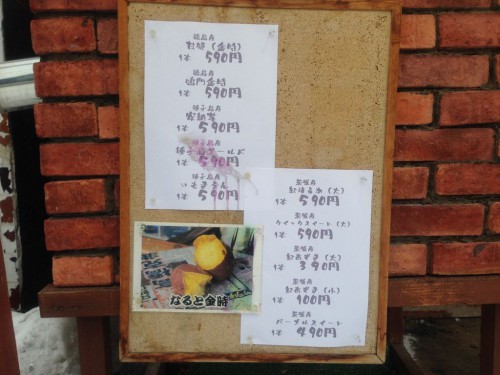 徳島産
紅姫(金時)
1本 590円
徳島産
鳴門金時
1本 590円
種子島産
安納芋
1本 590円
種子島産
種子島ゴールド
1本 590円
種子島産
1本 590円
茨城産
紅はるか(大)
1本 590円
茨城産
クイックスイート(大)
1本 590円
茨城産
紅あずま(大)
1本 390円
茨城産
紅あずま(小)
1本 100円
茨城産
パープルスイート
1本 490円
なると金時